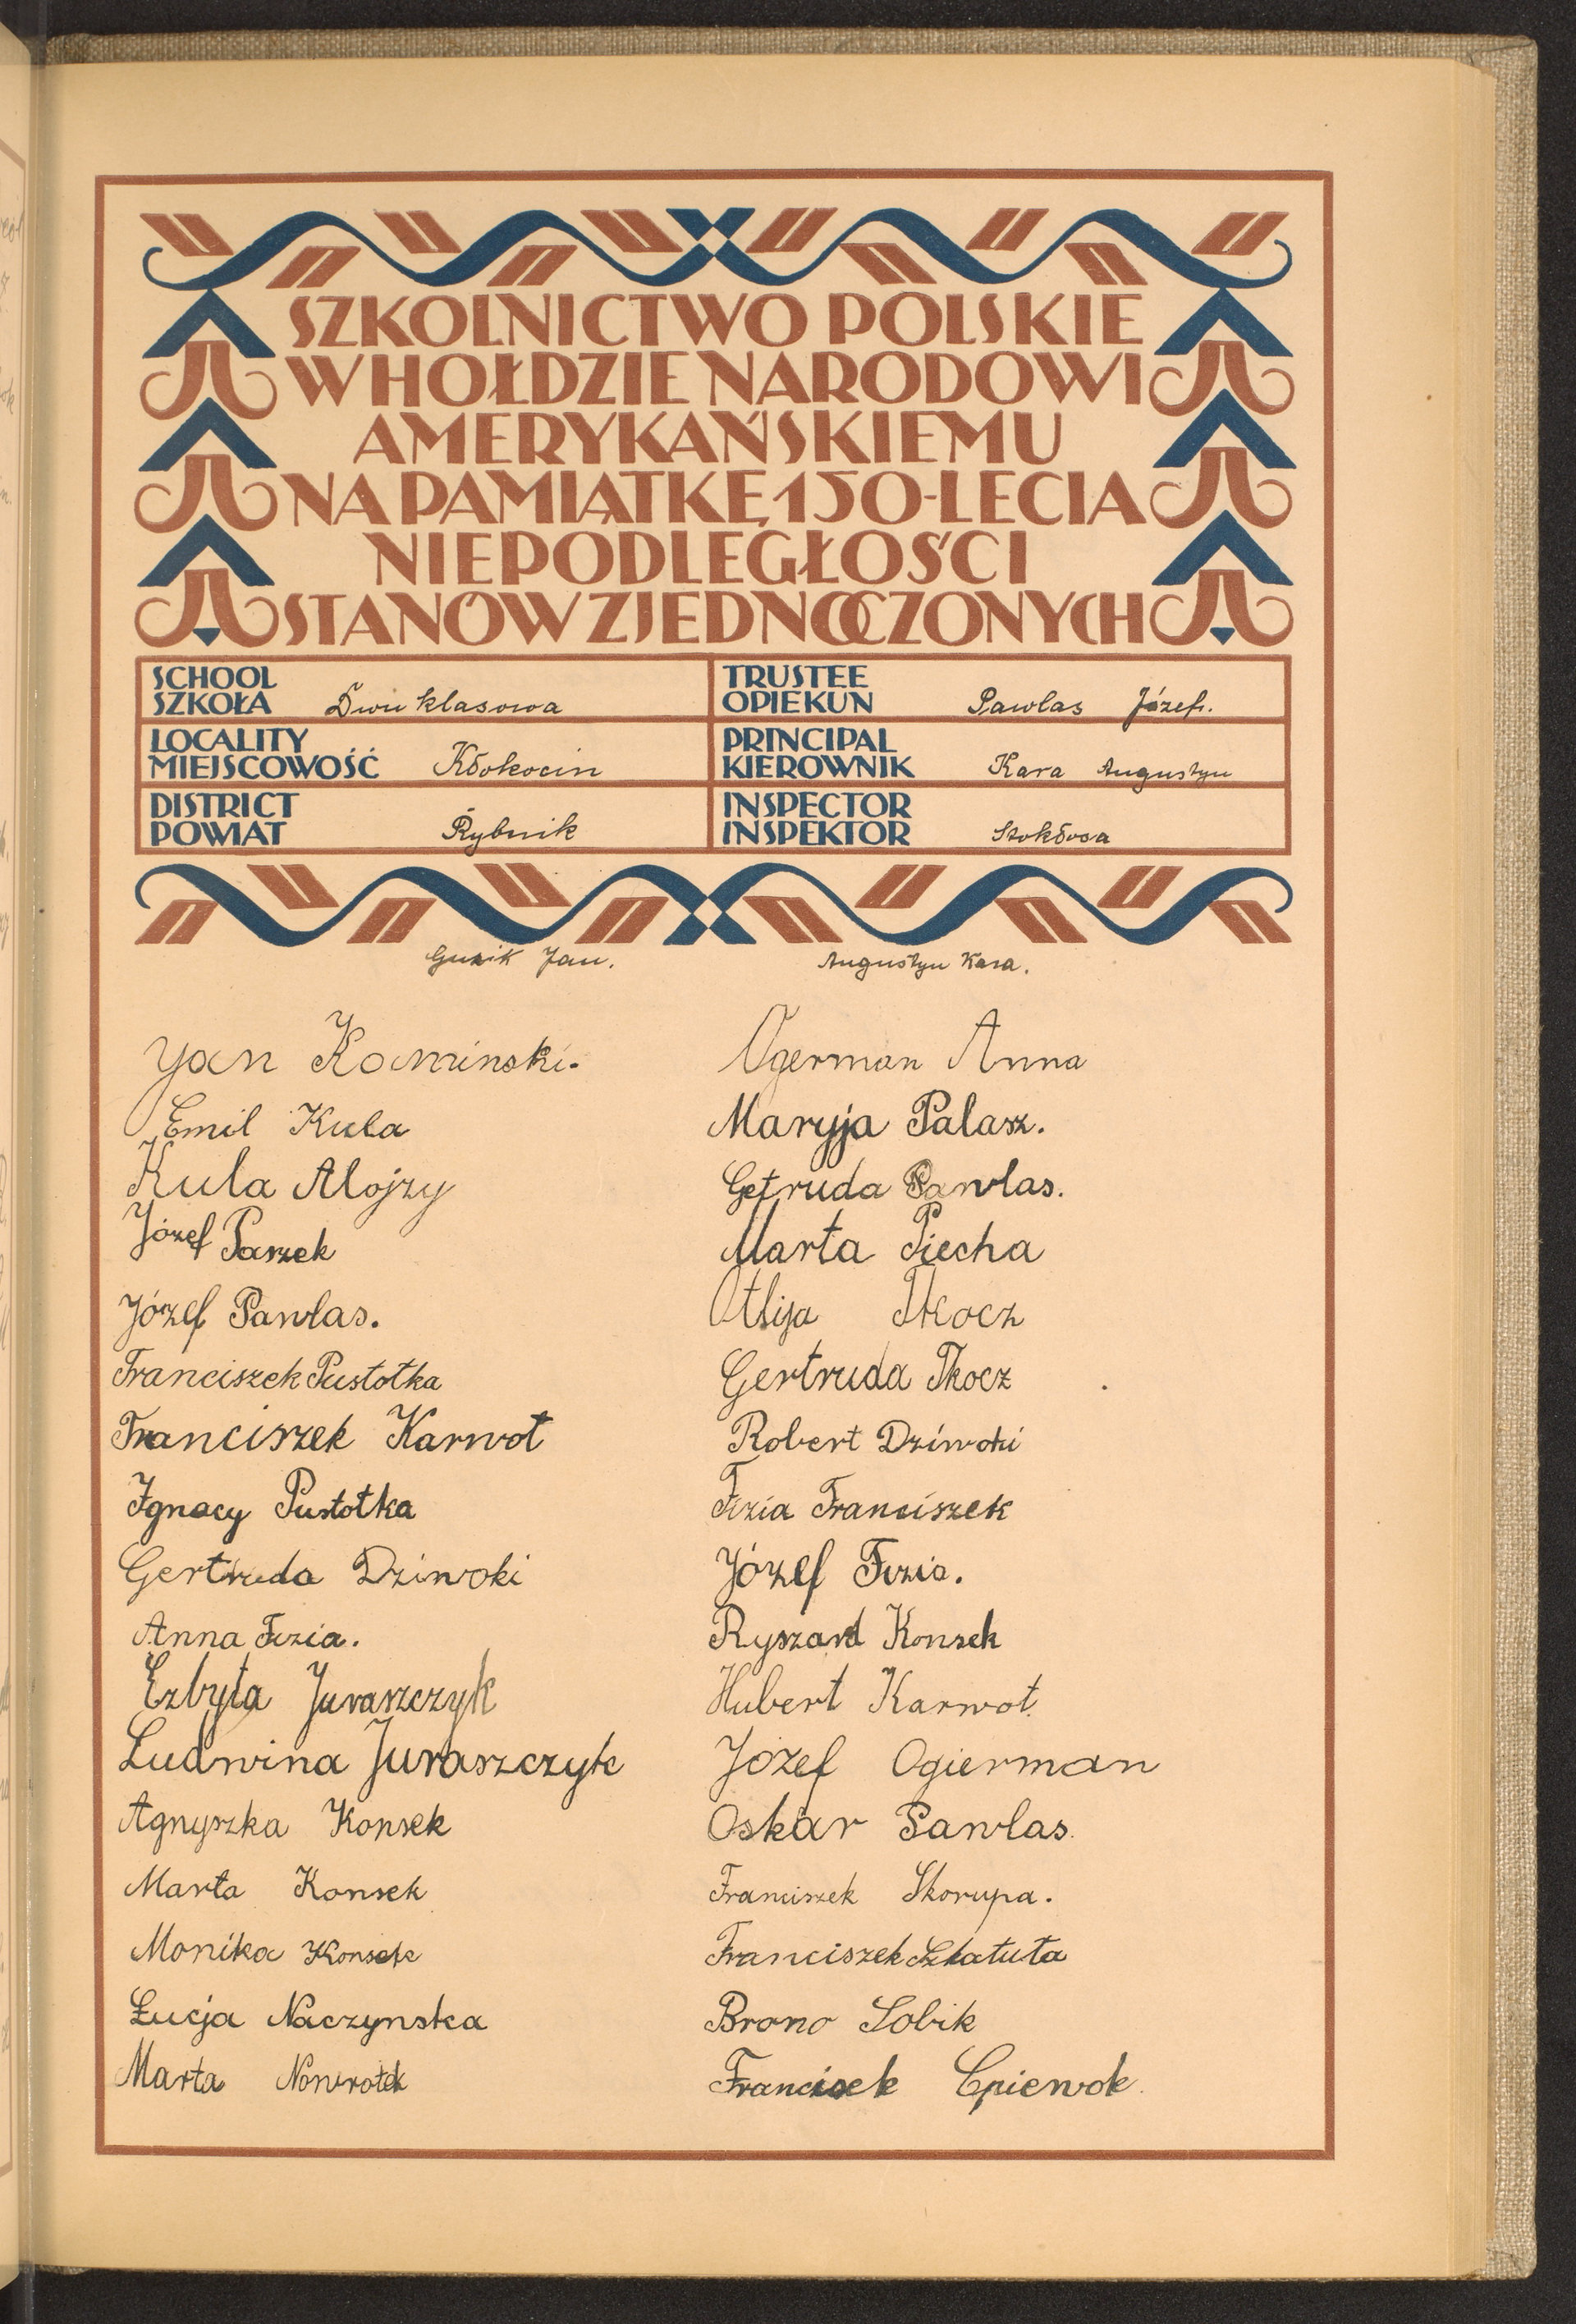 SZKOLNICTWO POLSKIE
W HOŁDZIE NARODOWI
AMERYKAŃSKIEMU
NA PAMIĄTKĘ 150-LECIA
NIEPODLEGŁOŚCI
STANÓW ZJEDNOCZONYCH
SCHOOL
SZKOŁA Dwuklasowa
TRUSTEE
OPIEKUN Pawlas Józef.
LOCALITY
MIEJSCOWOŚĆ Kłokocin
PRINCIPAL
KIEROWNIK Kara Augustyn
DISTRICT
POWIAT Rybnik
INSPECTOR
INSPEKTOR Stokłosa
Guzik Jan.
Augustyn Kara.
Yan Kominski.
Emil Kula
Kula Alojzy
Józef Paszek
Józef Pawlas.
Franciszek Pustotka
Franciszek Karwot
Ignacy Pustotka
Gertruda Dziwoki
Anna Fizia.
Erbyta Juraszczyk
Ludwina Juraszczyk
Agnyszka Konsek
Marta Konsek
Monika Konsek
Łucja Naczynska
Marta Nowrotek
Ogerman Anna
Maryja Palasz.
Getruda Pawlas.
Marta Piecha
Otlija Tkocz
Gertruda Tkocz
Robert Dziwoki
Fizia Franciszek
Józef Fizia.
Ryszard Konsek
Hubert Karwot.
Józef Ogierman
Oskar Pawlas.
Franciszek Skorupa.
Franciszek Szkatuta
Brono Sobik
Francisek Cpiewok.